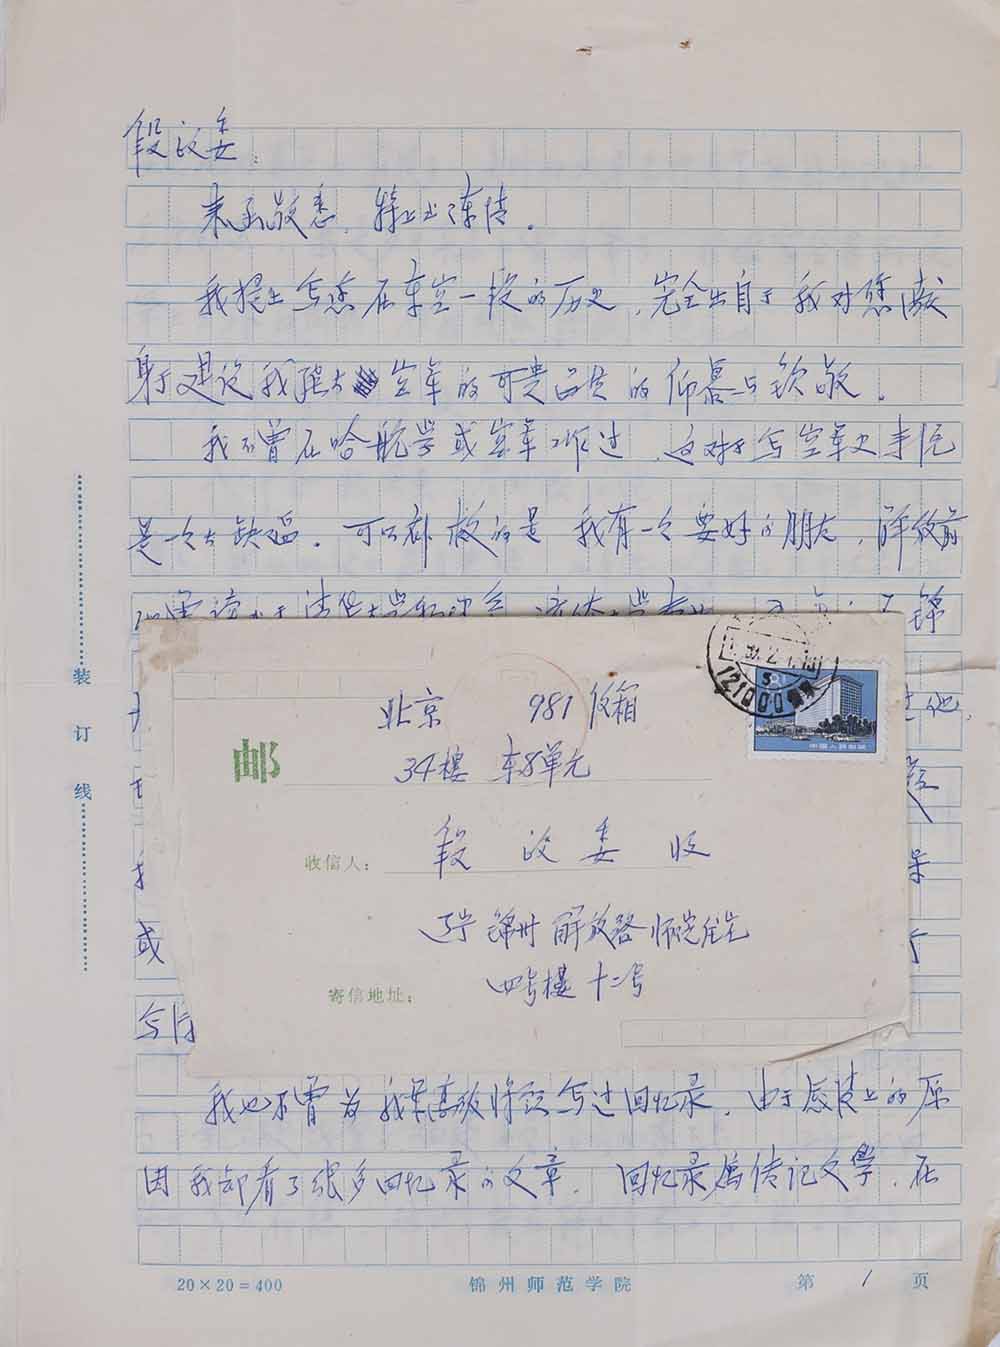 段政委：
来函敬悉，特上书陈情。
我提出写您在东空一段的历史，完全出自于我对您献
身于建设我强大空军的可贵品质的仰慕与钦敬。
我不曾在哈航学或空军工作过，这对于写空军史来说
是一个大缺陷。可以补救的是我有一个要好的朋友，解放前
锦
他，
或
写
北京 981信箱
34楼 东8单元
邮
收信人： 段政委收
辽宁锦州解放路师院住宅
寄信地址： 四号楼十二号
121000
中国人民邮政
我也不曾为我军高级将领写过回忆录，由于感情上的原
因我却看了很多回忆录的文章。回忆录属传记文学，在
装订线
20×20＝400 锦州师范学院 第1页